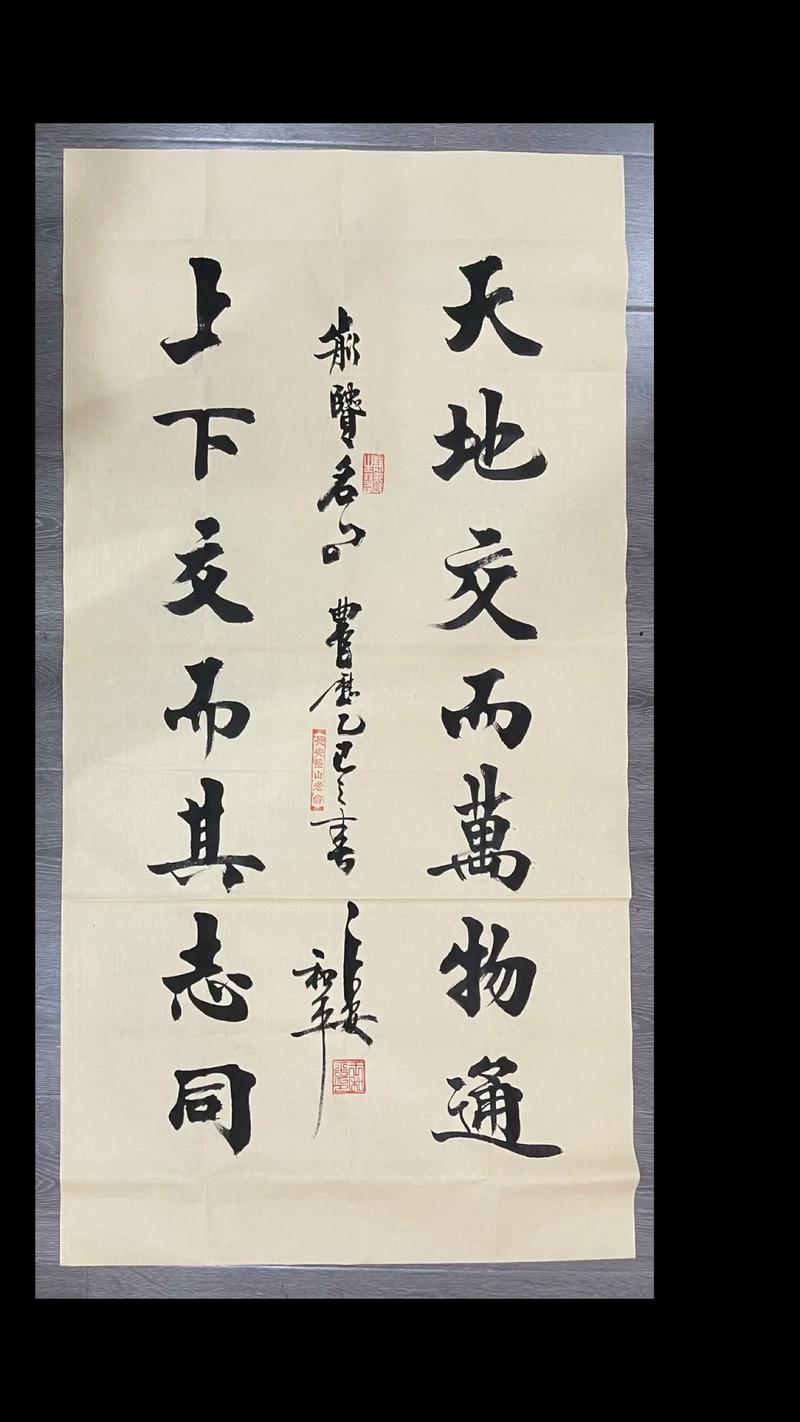 天地交而萬物通
前賢名句 農歷乙巳之春 和平
上下交而其志同